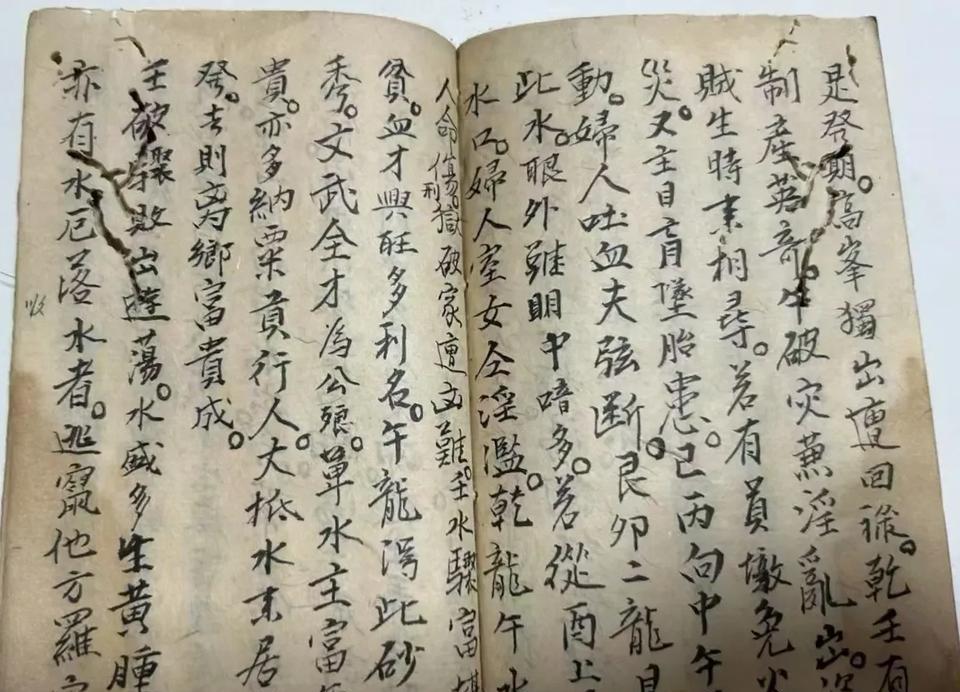 是發朝。高峯獨出遭回祿。乾壬有
制產英奇。午破災兼淫亂出。
賊生時来相尋。若有員墩兔
災。又主目盲墜胎患。己丙向中午
動。婦人吐血夫弦断。艮卯二龍
此水。眼外雖明中暗多。若從酉上
水口。婦人室女仝淫濫。乾龍午水
人命傷刑獄破家遭凶難。壬水驟富
貧。血才興旺多利名。午龍淂此砂
秀。文武全才為公卿。單水主富
貴。亦多納粟貢行人。大抵水来居
發。去則离鄉富貴成。
壬破驟敗出遊蕩。水盛多生黃腫
亦有水厄落水者。逃竄他方羅